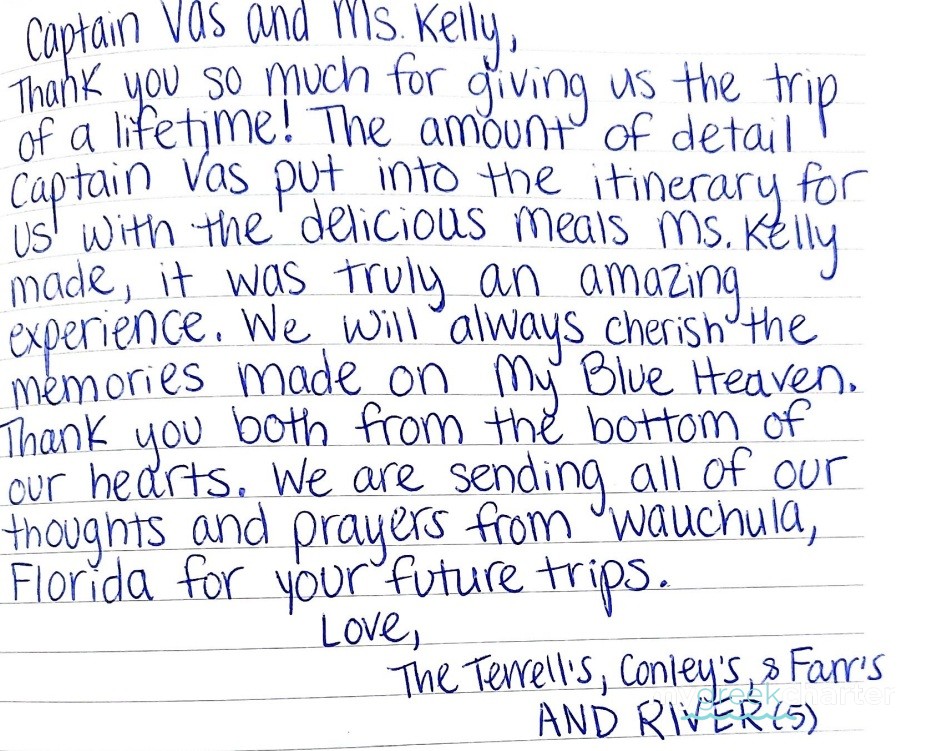 Captain Vas and Ms. Kelly,
Thank you so much for giving us the trip
of a lifetime! The amount of detail
Captain Vas put into the itinerary for
us with the delicious meals Ms. Kelly
made, it was truly an amazing
experience. We will always cherish the
memories made on My Blue Heaven.
Thank you both from the bottom of
our hearts. We are sending all of our
thoughts and prayers from Wauchula,
Florida for your future trips.
Love,
The Terrell's, Conley's, & Farr's
AND RIVER (5)
mygreekcharter